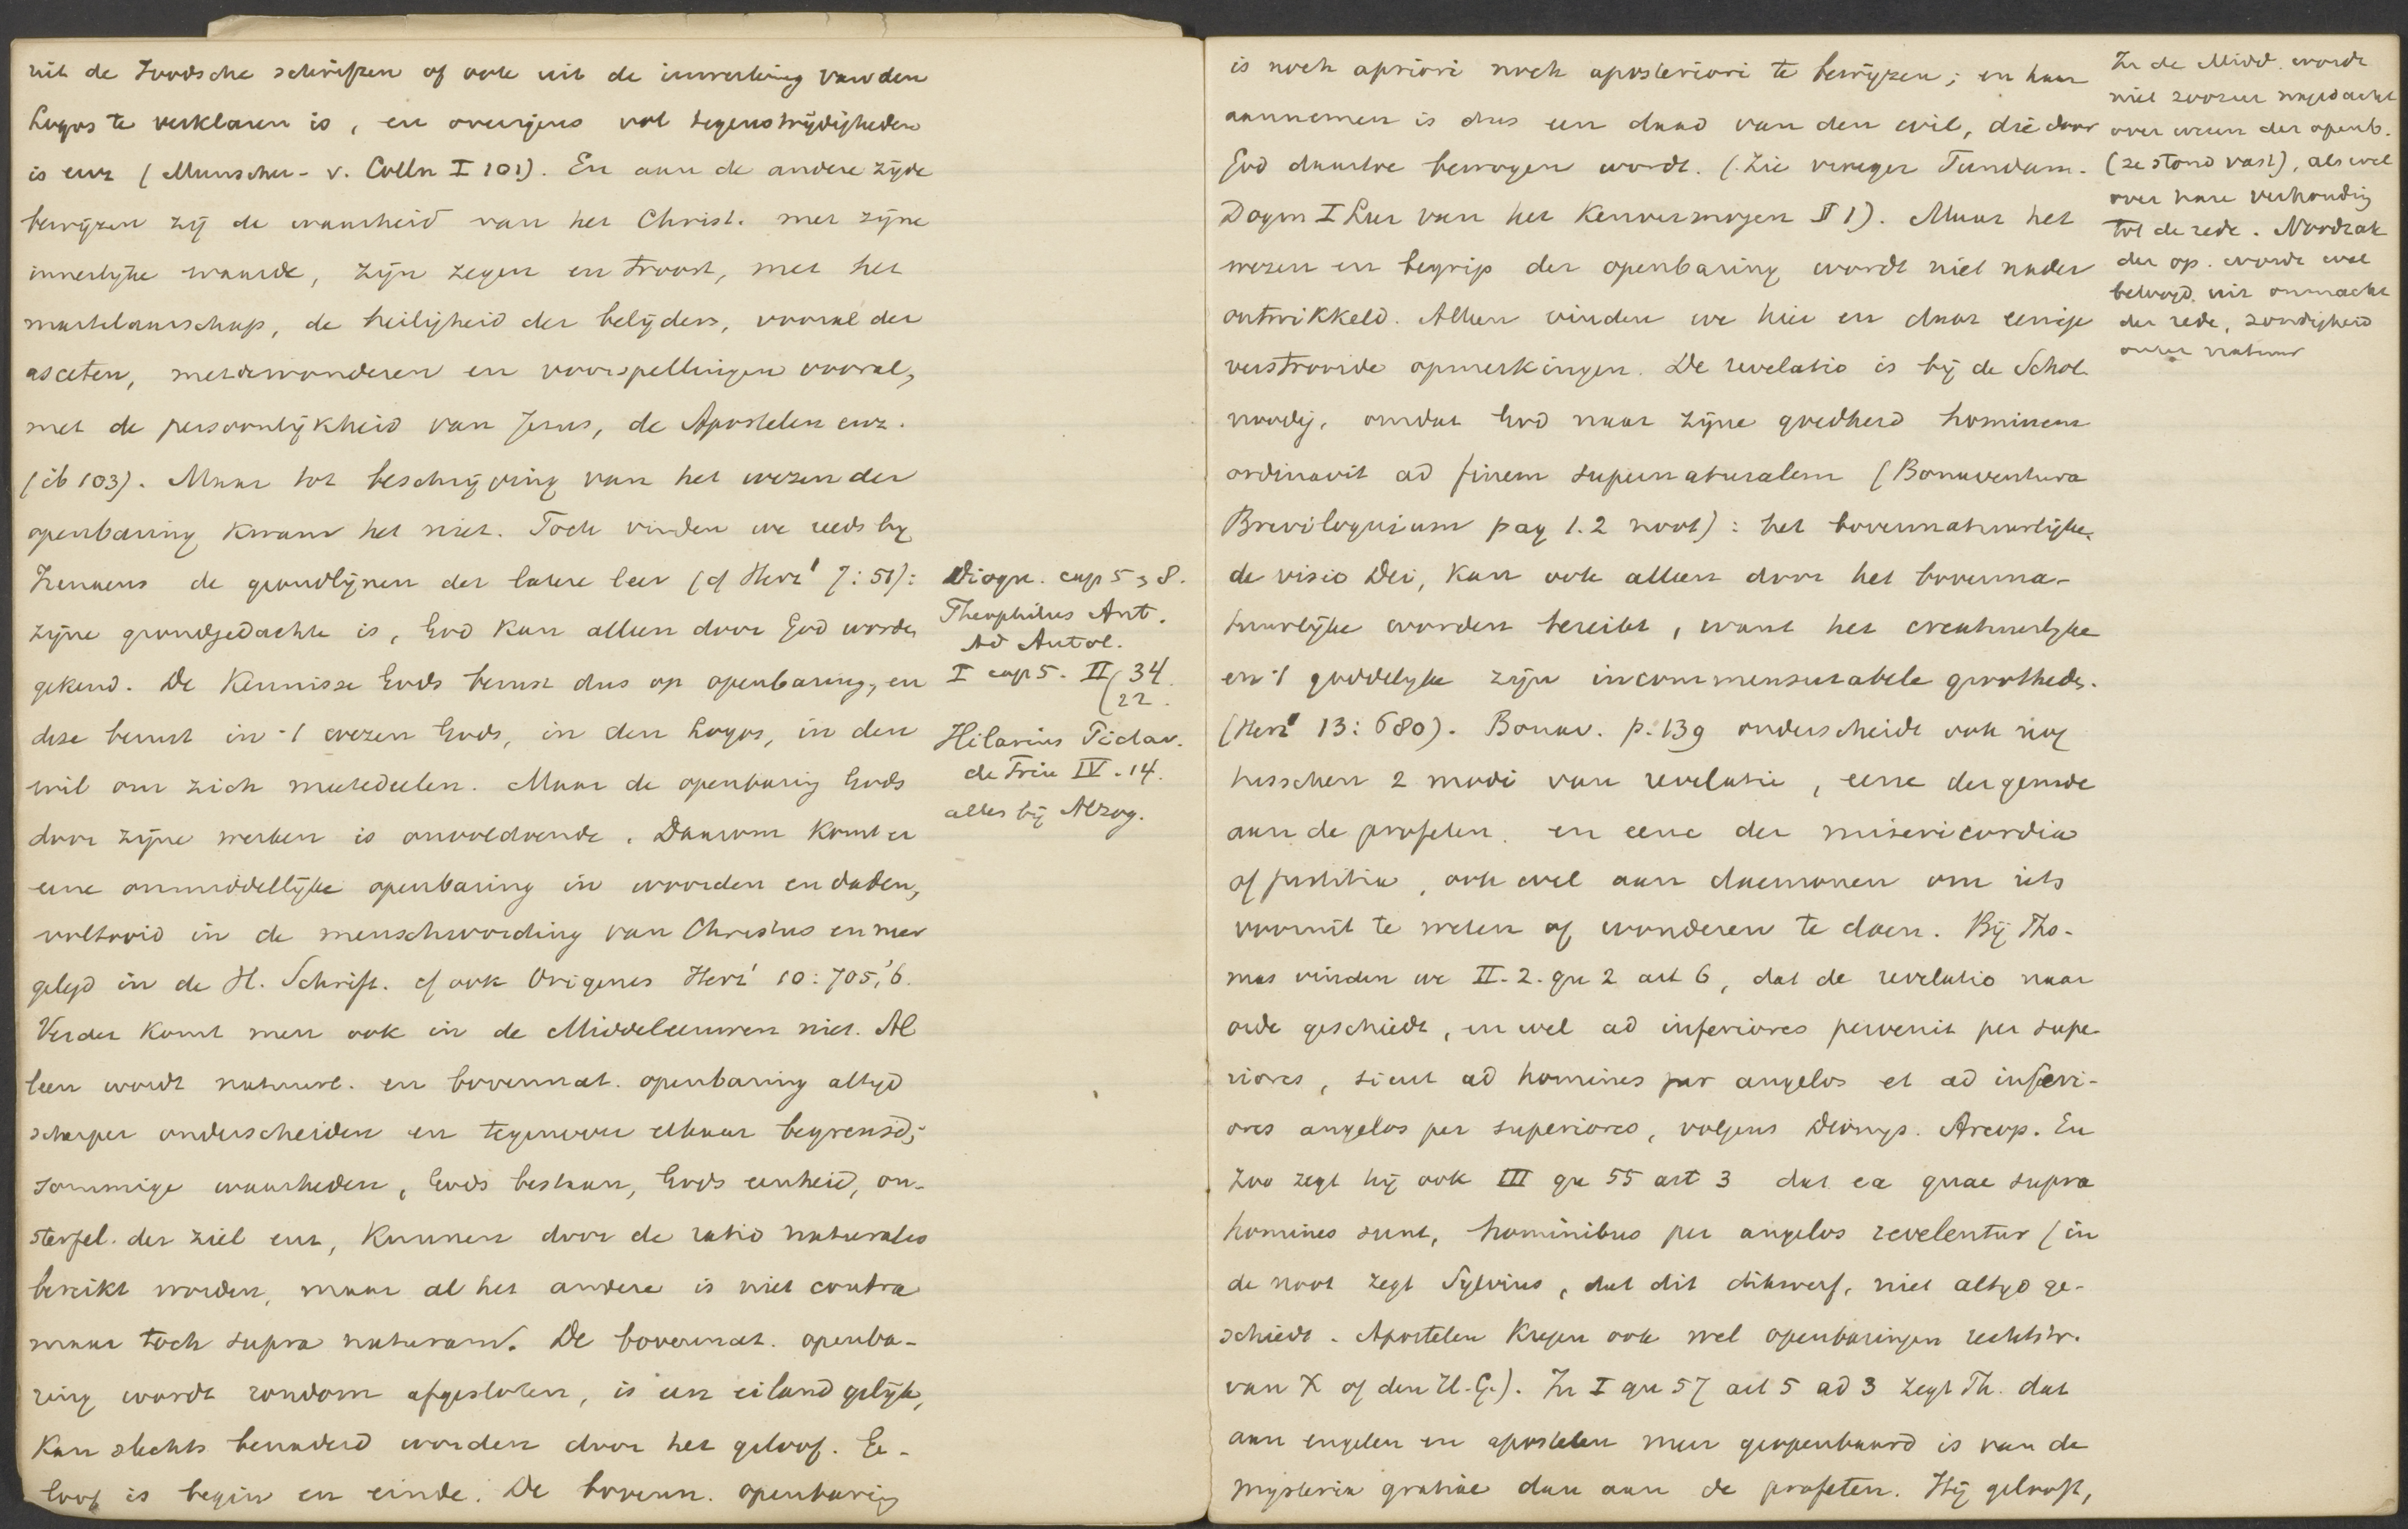 uit de Joodsche schriften of ook uit de inwerking van den
Logos te verklaren is, en overigens vol tegenstrijdigheden
is enz (Munscher - v. Colln I 101). En aan de andere zijde
bewijzen zij de waarheid van het Christ. met zijne
innerlijke waarde, zijn zegen en troost, met het
martelaarschap, de heiligheid der belijders, vooral der
asceten, met de wonderen en voorspellingen vooral,
met de persoonlijkheid van Jezus, de Apostelen enz.
(ib 103). Maar tot beschrijving van het wezen der
openbaring kwam het niet. Toch vinden we reeds bij
Irenaeus de grondlijnen der latere leer (cf Herz¹ 7:51):
zijne grondgedachte is, God kan alleen door God worden
gekend. De Kennisse Gods berust dus op openbaring, en
deze berust in 't wezen Gods, in den Logos, in den
wil om zich meetedeelen. Maar de openbaring Gods
door zijne werken is onvoldoende. Daarom komt er
eene onmiddellijke openbaring in woorden en daden,
voltooid in de menschwording van Christus en neer
gelegd in de H. Schrift. cf ook Origenes Herz¹ 10:705,'6.
Verder komt men ook in de Middeleeuwen niet. Al
leen wordt natuurl. en bovennat. openbaring altijd
scherper onderscheiden en tegenover elkaar begrensd;
sommige waarheden, Gods bestaan, Gods eenheid, on-
sterfel. der ziel enz, kunnen door de ratio naturalis
bereikt worden, maar al het andere is niet contra
maar toch supra naturam. De bovennat. openba-
ring wordt rondom afgesloten, is een eiland gelijk,
Kan slechts benaderd worden door het geloof. Ge-
loof is begin en einde. De bovenn. openbaring
Diogn. cap 5, 8.
Theophilus Ant.
Ad Autol.
I cap 5. II, 34.
(22.
Hilarius Pictav.
de Trin IV. 14.
alles bij Alzog.
is noch apriori noch aposteriori te bewijzen; en haar
aannemen is dus een daad van den wil, die door
God daartoe bewogen wordt. (Zie vroeger Fundam.
Dogm I Leer van het Kenvermogen II 1). Maar het
wezen en begrip der openbaring wordt niet nader
ontwikkeld. Alleen vinden we hier en daar eenige
verstrooide opmerkingen. De revelatio is bij de Schol.
noodig, omdat God naar zijne goedheid hominem
ordinavit ad finem supernaturalem (Bonaventura
Breviloquium pag 1.2 noot): het bovennatuurlijke,
de visio Dei, kan ook alleen door het bovenna-
tuurlijke worden bereikt, want het creatuurlijke
en 't goddelijke zijn incommensurabele grootheden.
(Herz¹ 13:680). Bonav. p. 139 onderscheidt ook nog
tusschen 2 modi van revelatie, eene der genade
aan de profeten, en eene der misericordia
of justitia, ook wel aan daemonen om iets
vooruit te weten of wonderen te doen. Bij Tho-
mas vinden we II. 2. qu 2 art 6, dat de revelatio naar
orde geschiedt, en wel ad inferiores pervenit per supe-
riores, sicut ad homines per angelos et ad inferi-
ores angelos per superiores, volgens Dionys. Areop. En
zoo zegt hij ook III qu 55 art 3 dat ea quae supra
homines sunt, hominibus per angelos revelentur (in
de noot zegt Sylvius, dat dit dikwerf, niet altijd ge-
schiedt. Apostelen kregen ook wel openbaringen rechtstr.
van X of den H.G.). In I qu 57 art 5 ad 3 zegt Th. dat
aan engelen en apostelen meer geopenbaard is van de
mysteria gratiae dan aan de profeten. Hij gelooft,
In de Midd. wordt
niet zoozeer nagedacht
over wezen der openb.
(ze stond vast), als wel
over hare verhouding
tot de rede. Noodzak
der op. wordt wel
betoogd, uit onmacht
der rede, zondigheid
onzer natuur